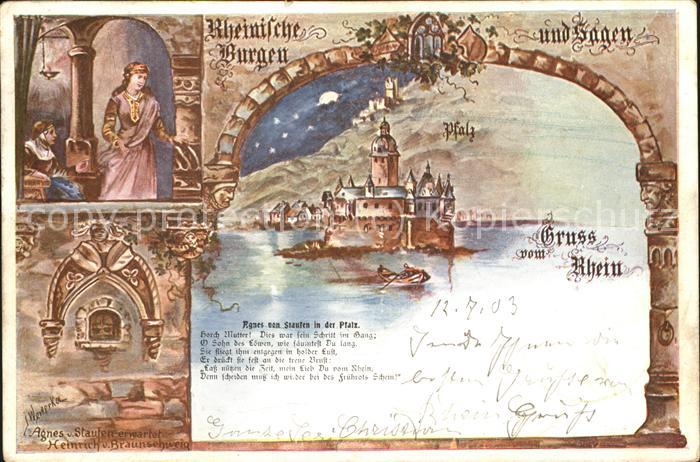 Rheinische
Burgen
und Sagen
Pfalz
Gruss
vom Rhein
Agnes von Staufen in der Pfalz.
Horch Mutter! Dies war sein Schritt im Gang;
O Sohn des Löwen, wie säumtest Du lang.
Sie fliegt ihm entgegen in holder Lust,
Er drückt sie fest an die treue Brust:
"Laß nützen die Zeit, mein Lieb Du vom Rhein,
Denn scheiden muß ich wieder bei des Frührots Schein!"
12.7.03
Ihnen die
besten Grüße
Rhein
Christian
Agnes v. Staufen erwartet
Heinrich v. Braunschweig
copyright protection Kopierschutz